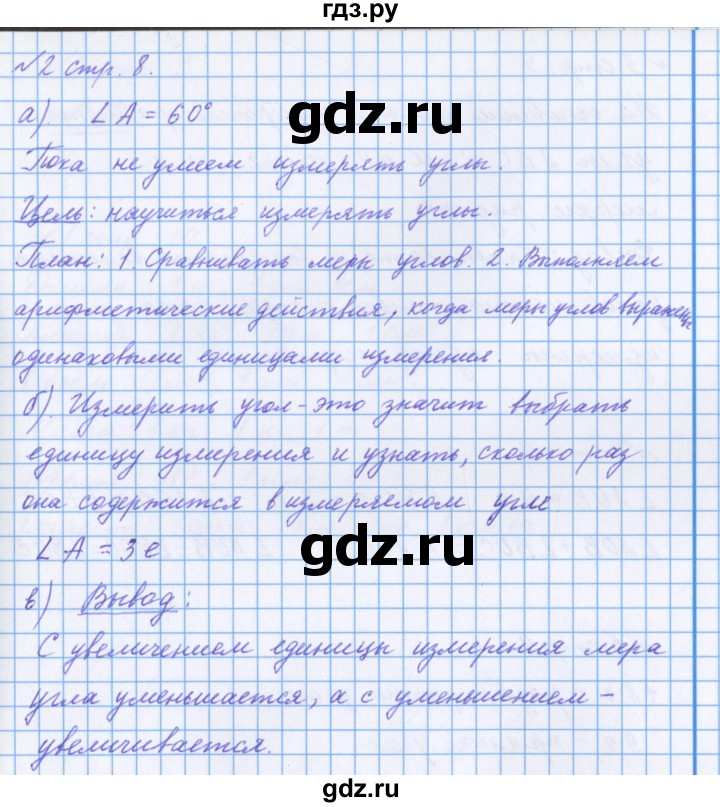 гдз.ру
№2 стр. 8.
а). ∠A = 60°
Пока не умеем измерять углы.
Цель: научиться измерять углы.
План: 1. Сравнивать меры углов. 2. Выполняем
арифметические действия, когда меры углов выражены
одинаковыми единицами измерения.
б). Измерить угол - это значит выбрать
единицу измерения и узнать, сколько раз
она содержится в измеряемом угле
∠A = 3e
в) Вывод:
С увеличением единицы измерения мера
угла уменьшается, а с уменьшением -
увеличивается.
gdz.ru
gdz.ru
gdz.ru